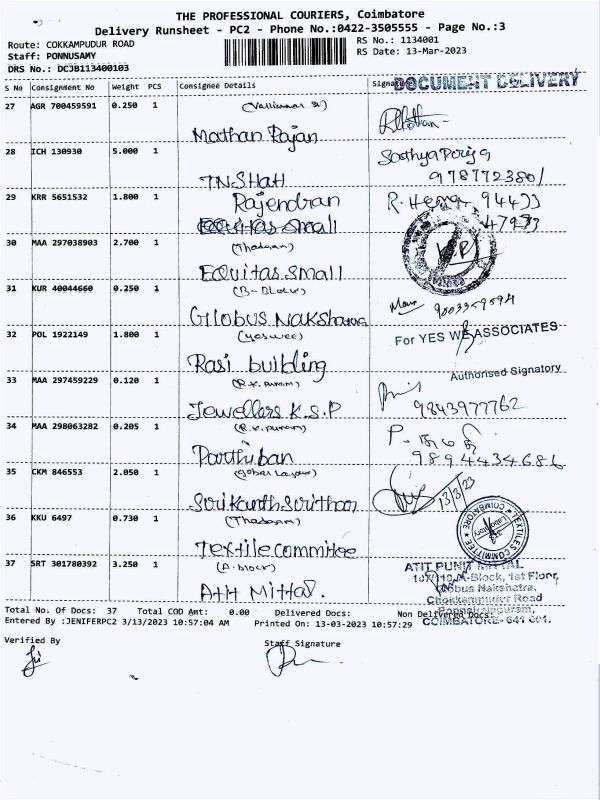 THE PROFESSIONAL COURIERS, Coimbatore
Delivery Runsheet - PC2 - Phone No.:0422-3505555 - Page No.:3
Route: COKKAMPUDUR ROAD
RS No.: 1134001
Staff: PONNUSAMY
RS Date: 13-Mar-2023
DRS No.: DCJB113400103
S No Consignment No Weight PCS Consignee Details Signature
DOCUMENT DELIVERY
27 AGR 700459591 0.250 1
Mathan Rajan
28 ICH 130930 5.000 1
Sathya Priya
978772380/
TNSHAH
29 KRR 5651532 1.800 1 Rajendran
R. Hema 94433
47933
Equitas small
30 MAA 297038903 2.700 1 (Thadagam)
Equitas small
31 KUR 40044660 0.250 1 (B-Block)
9003359594
Globus Nakshatra
32 POL 1922149 1.800 1 (yeswee)
For YES WE ASSOCIATES
Rasi building
33 MAA 297459229 0.120 1 (R.K. puram)
Authorised Signatory
9843977762
Jewellers K.S.P
34 MAA 298063282 0.205 1 (R.K. puram)
9894434686
Parthiban
35 CKM 846553 2.050 1
13/3/23
Srikanth Srithan
36 KKU 6497 0.730 1 (Thadagam)
TEXTILES COMMITTEE
COIMBATORE
Textile committee
37 SRT 301780392 3.250 1 (A-block)
ATIT PUNIT MITTAL
107/110, A-Block, 1st Floor,
Globus Nakshatra,
Chokkampudur Road
Atit Mittal.
COIMBATORE- 641 001.
Total No. Of Docs: 37 Total COD Amt: 0.00 Delivered Docs: Non Delivered Docs:
Entered By :JENIFERPC2 3/13/2023 10:57:04 AM Printed On: 13-03-2023 10:57:29
Verified By
Staff Signature